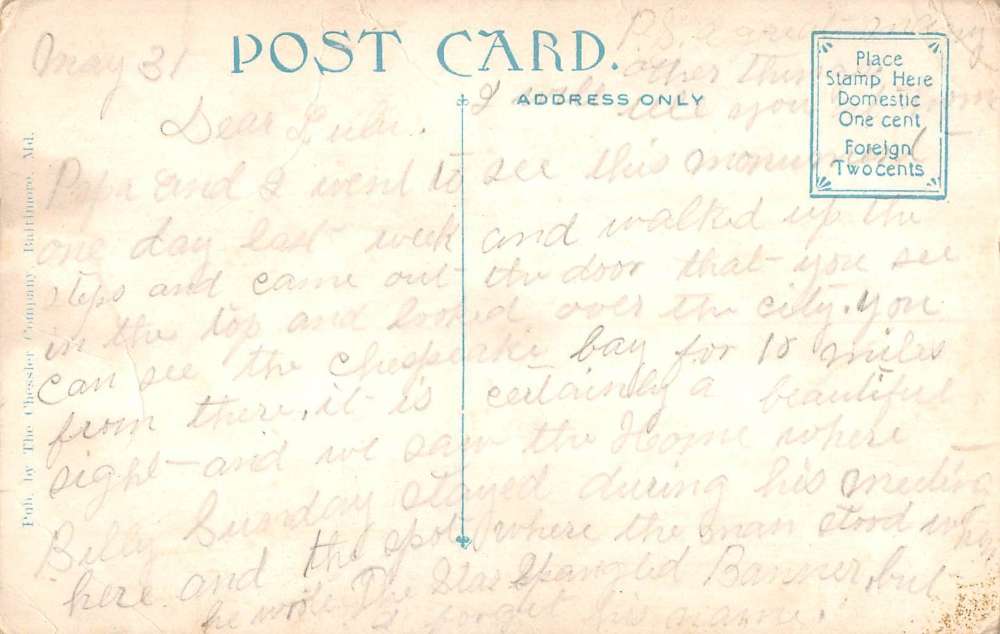 POST CARD.
ADDRESS ONLY
Place
Stamp Here
Domestic
One cent
Foreign
Two cents
Pub. by The Chessler Company, Baltimore, Md.
May 31
Dear
Papa and I went to see this monument
one day last week and walked up the
steps and came out the door that you see
in the top and looked over the city. you
can see the Chespeake bay for 18 miles
from there, it is certainly a beautiful
sight and we saw the Home where
Billy Sunday stayed during his meeting
here and the spot where the man stood when
he wrote The Star Spangled Banner, but
I forget his name.
P.S. a great many
other things
I will tell you